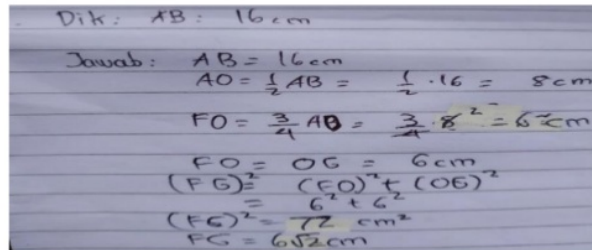 Dik: AB: 16 cm
Jawab: AB = 16 cm
AO = 1/2 AB = 1/2 . 16 = 8 cm
FO = 3/4 AO = 3/4 . 8 2 = 6 cm
FO = OG = 6 cm
(FG)² = (FO)² + (OG)²
= 6² + 6²
(FG)² = 72 cm²
FG = 6√2 cm